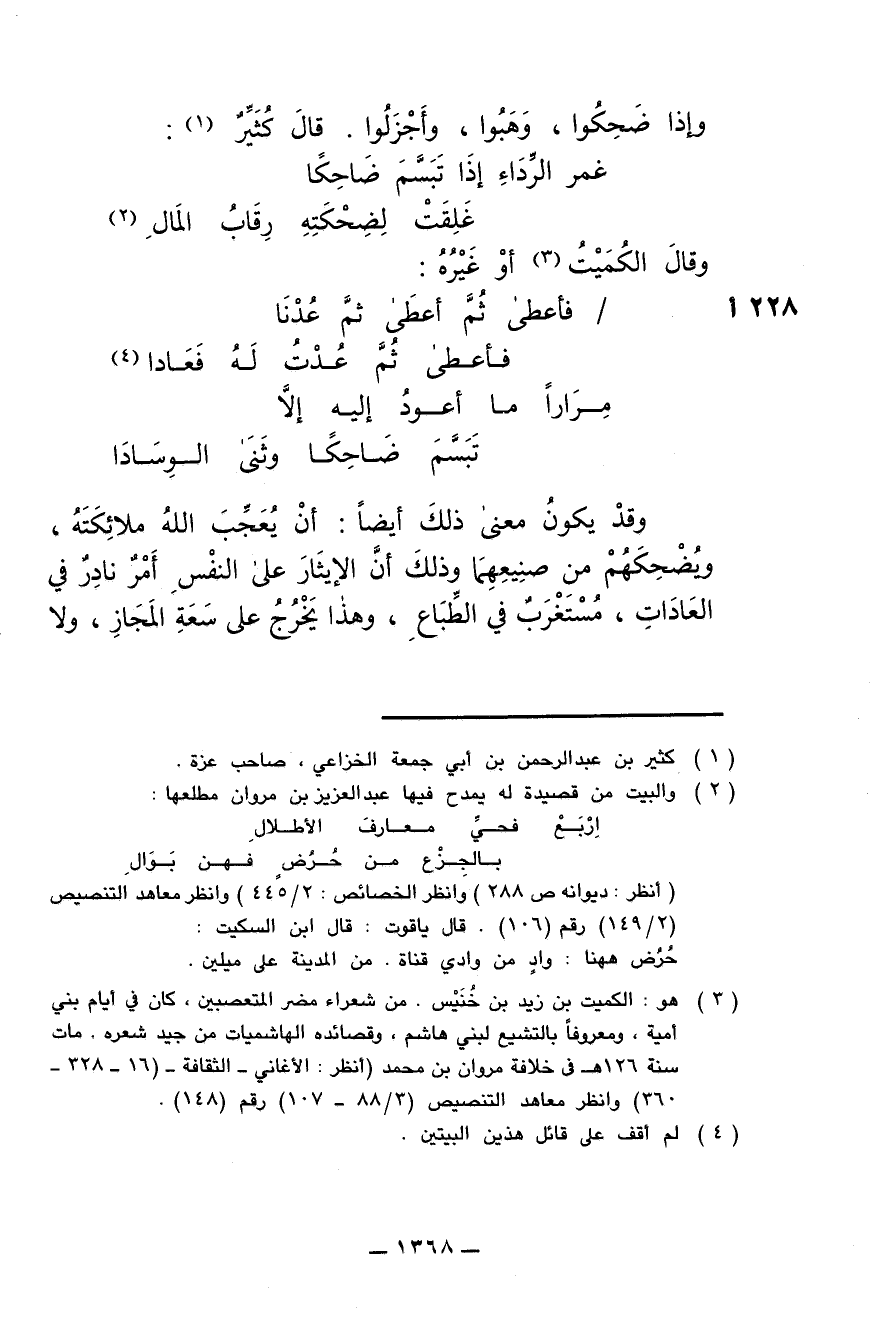 وإذا ضَحِكُوا ، وَهَبُوا ، وأَجْزَلُوا . قالَ كُثَيِّرٌ (١) :
غمر الرِّدَاءِ إِذَا تَبَسَّمَ ضَاحِكًا
غَلِقَتْ لِضِحْكَتِهِ رِقَابُ المَالِ (٢)
وقالَ الكُمَيْتُ (٣) أوْ غَيْرُهُ :
٢٢٨ أ / فأعطىٰ ثُمَّ أعطَىٰ ثمَّ عُدْنَا
فـأعـطىٰ ثُمَّ عُـدْتُ لَـهُ فَعَـادا (٤)
مِـرَاراً مـا أعـودُ إليـه إلَّا
تَبَسَّمَ ضَـاحِكًـا وثَنَىٰ الـوِسَـادَا
وقدْ يكونُ معنىٰ ذلكَ أيضاً : أنْ يُعَجِّبَ اللهُ ملائِكَتَهُ ،
ويُضْحِكَهُمْ من صنِيعِهِمَا وذلكَ أنَّ الإيثَارَ علىٰ النفْسِ أَمْرٌ نادِرٌ في
العَادَاتِ ، مُسْتَغْرَبٌ في الطِّبَاعِ ، وهذٰا يَخْرُجُ على سَعَةِ المَجَازِ ، ولا
( ١ ) كثير بن عبدالرحمن بن أبي جمعة الخزاعي ، صاحب عزة .
( ٢ ) والبيت من قصيدة له يمدح فيها عبدالعزيز بن مروان مطلعها :
اِرْبَـعْ فحـيِّ معـارفَ الأطـلالِ
بـالجِـزْعِ مـن حُـرُضٍ فـهـن بَـوَالِ
( أنظر : ديوانه ص ٢٨٨ ) وانظر الخصائص : ٤٤٥/٢ ) وانظر معاهد التنصيص
(١٤٩/٢) رقم (١٠٦) . قال ياقوت : قال ابن السكيت :
حُرُض ههنا : وادٍ من وادي قناة . من المدينة على ميلين .
( ٣ ) هو : الكميت بن زيد بن خُنَيْس . من شعراء مضر المتعصبين ، كان في أيام بني
أمية ، ومعروفاً بالتشيع لبني هاشم ، وقصائده الهاشميات من جيد شعره . مات
سنة ١٢٦هـ فى خلافة مروان بن محمد (أنظر : الأغاني ـ الثقافة ـ (١٦ ـ ٣٢٨ ـ
٣٦٠) وانظر معاهد التنصيص (٨٨/٣ ـ ١٠٧) رقم (١٤٨) .
( ٤ ) لم أقف على قائل هذين البيتين .
ـ ١٣٦٨ ـ